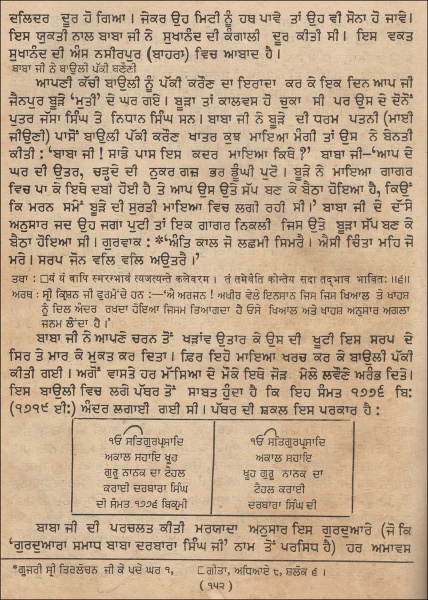 ਦਲਿਦਰ ਦੂਰ ਹੋ ਗਿਆ। ਜੇਕਰ ਉਹ ਮਿਟੀ ਨੂੰ ਹਥ ਪਾਵੇ ਤਾਂ ਉਹ ਵੀ ਸੋਨਾ ਹੋ ਜਾਵੇ।
ਇਸ ਯੁਕਤੀ ਨਾਲ ਬਾਬਾ ਜੀ ਨੇ ਸੁਖਾਨੰਦ ਦੀ ਕੰਗਾਲੀ ਦੂਰ ਕੀਤੀ ਸੀ। ਇਸ ਵਕਤ
ਸੁਖਾਨੰਦ ਦੀ ਅੰਸ ਨਸੀਰਪੁਰ (ਬਾਹਰਾ) ਵਿਚ ਆਬਾਦ ਹੈ।
ਬਾਬਾ ਜੀ ਨੇ ਬਾਉਲੀ ਪੱਕੀ ਬਣੌਣੀ
ਆਪਣੀ ਕੱਚੀ ਬਾਉਲੀ ਨੂੰ ਪੱਕੀ ਕਰੌਣ ਦਾ ਇਰਾਦਾ ਕਰ ਕੇ ਇਕ ਦਿਨ ਆਪ ਜੀ
ਜੈਨਪੁਰ ਬੂੜੇ 'ਮੁਤੀ' ਦੇ ਘਰ ਗਏ। ਬੂੜਾ ਤਾਂ ਕਾਲਵਸ ਹੋ ਚੁਕਾ ਸੀ ਪਰ ਉਸ ਦੇ ਦੋਨੋਂ
ਪੁਤਰ ਜੱਸਾ ਸਿੰਘ ਤੇ ਨਿਧਾਨ ਸਿੰਘ ਸਨ। ਬਾਬਾ ਜੀ ਨੇ ਬੂੜੇ ਦੀ ਧਰਮ ਪਤਨੀ (ਮਾਈ
ਜੀਉਣੀ) ਪਾਸੋਂ ਬਾਉਲੀ ਪੱਕੀ ਕਰੌਣ ਖਾਤਰ ਕੁਝ ਮਾਇਆ ਮੰਗੀ ਤਾਂ ਉਸ ਨੇ ਬੇਨਤੀ
ਕੀਤੀ : 'ਬਾਬਾ ਜੀ ! ਸਾਡੇ ਪਾਸ ਇਸ ਕਦਰ ਮਾਇਆ ਕਿਥੇ ?' ਬਾਬਾ ਜੀ–'ਆਪ ਦੇ
ਘਰ ਦੀ ਉਤਰ, ਚੜ੍ਹਦੇ ਦੀ ਨੁਕਰ ਗਜ਼ ਭਰ ਡੂੰਘੀ ਪੁਟੋ। ਬੂੜੇ ਨੇ ਮਾਇਆ ਗਾਗਰ
ਵਿਚ ਪਾ ਕੇ ਇਥੇ ਦਬੀ ਹੋਈ ਹੈ ਤੇ ਆਪ ਉਸ ਉਤੇ ਸੱਪ ਬਣ ਕੇ ਬੈਠਾ ਹੋਇਆ ਹੈ, ਕਿਉਂ
ਕਿ ਮਰਨ ਸਮੇਂ ਬੂੜੇ ਦੀ ਸੁਰਤੀ ਮਾਇਆ ਵਿਚ ਲਗੀ ਰਹੀ ਸੀ।' ਬਾਬਾ ਜੀ ਦੇ ਦੱਸੇ
ਅਨੁਸਾਰ ਜਦ ਉਹ ਜਗਾ ਪੁਟੀ ਤਾਂ ਇਕ ਗਾਗਰ ਨਿਕਲੀ ਜਿਸ ਉਤੇ ਬੂੜਾ ਸੱਪ ਬਣ ਕੇ
ਬੈਠਾ ਹੋਇਆ ਸੀ। ਗੁਰਵਾਕ : *'ਅੰਤਿ ਕਾਲ ਜੋ ਲਛਮੀ ਸਿਮਰੈ। ਐਸੀ ਚਿੰਤਾ ਮਹਿ ਜੋ
ਮਰੈ। ਸਰਪ ਜੋਨ ਵਲਿ ਵਲਿ ਅਉਤਰੈ।'
ਤਥਾ : □यं यं वापि स्मरन्भावं त्यजत्यन्ते कलेवरम्। तं तमेवैति कौन्तेय सदा तद्भाव भावितः॥६॥
ਅਰਥ : ਸ੍ਰੀ ਕ੍ਰਿਸ਼ਨ ਜੀ ਫੁਰਮੌਂਦੇ ਹਨ :—'ਐ ਅਰਜਨ ! ਅਖੀਰ ਵੇਲੇ ਇਨਸਾਨ ਜਿਸ ਜਿਸ ਖਿਆਲ ਤੇ ਖਾਹਸ਼
ਨੂੰ ਦਿਲ ਅੰਦਰ ਰਖਦਾ ਹੋਇਆ ਜਿਸਮ ਤਿਆਗਦਾ ਹੈ ਓਸੇ ਖਿਆਲ ਅਤੇ ਖਾਹਸ਼ ਅਨੁਸਾਰ ਅਗਲਾ
ਜਨਮ ਲੈਂਦਾ ਹੈ।'
ਬਾਬਾ ਜੀ ਨੇ ਆਪਣੇ ਚਰਨ ਤੋਂ ਖੜਾਂਵ ਉਤਾਰ ਕੇ ਉਸ ਦੀ ਖੂਟੀ ਇਸ ਸਰਪ ਦੇ
ਸਿਰ ਤੇ ਮਾਰ ਕੇ ਮੁਕਤ ਕਰ ਦਿਤਾ। ਫ਼ਿਰ ਇਹੋ ਮਾਇਆ ਖਰਚ ਕਰ ਕੇ ਬਾਉਲੀ ਪੱਕੀ
ਕੀਤੀ ਗਈ। ਅਗੋਂ ਵਾਸਤੇ ਹਰ ਮੱਸਿਆ ਦੇ ਮੌਕੇ ਇਥੇ ਜੋੜ ਮੇਲੇ ਲਵੌਣੇ ਅਰੰਭ ਦਿਤੇ।
ਇਸ ਬਾਉਲੀ ਵਿਚ ਲਗੇ ਪੱਥਰ ਤੋਂ ਸਾਬਤ ਹੁੰਦਾ ਹੈ ਕਿ ਇਹ ਸੰਮਤ ੧੭੭੬ ਬਿ:
(੧੭੧੯ ਈ:) ਅੰਦਰ ਲਗਾਈ ਗਈ ਸੀ। ਪੱਥਰ ਦੀ ਸ਼ਕਲ ਇਸ ਪਰਕਾਰ ਹੈ :
ੴ ਸਤਿਗੁਰਪ੍ਰਸਾਦਿ
ਅਕਾਲ ਸਹਾਇ ਖੂਹ
ਗੁਰੂ ਨਾਨਕ ਦਾ ਟੈਹਲ
ਕਰਾਈ ਦਰਬਾਰਾ ਸਿੰਘ
ਦੀ ਸੰਮਤ ੧੭੭੬ ਬਿਕ੍ਰਮੀ
ੴ ਸਤਿਗੁਰਪ੍ਰਸਾਦਿ
ਅਕਾਲ ਸਹਾਇ
ਖੂਹ ਗੁਰੂ ਨਾਨਕ ਦਾ
ਟੈਹਲ ਕਰਾਈ
ਦਰਬਾਰਾ ਸਿੰਘ ਦੀ
ਬਾਬਾ ਜੀ ਦੀ ਪਰਚਲਤ ਕੀਤੀ ਮਰਯਾਦਾ ਅਨੁਸਾਰ ਇਸ ਗੁਰਦੁਆਰੇ (ਜੋ ਕਿ
'ਗੁਰਦੁਆਰਾ ਸਮਾਧ ਬਾਬਾ ਦਰਬਾਰਾ ਸਿੰਘ ਜੀ' ਨਾਮ ਤੋਂ ਪਰਸਿਧ ਹੈ) ਹਰ ਅਮਾਵਸ
*ਗੂਜਰੀ ਸ੍ਰੀ ਤਿਰਲੋਚਨ ਜੀ ਕੇ ਪਦੇ ਘਰ ੧, □ਗੀਤਾ, ਅਧਿਆਏ ੮, ਸ਼ਲੋਕ ੬।
(੧੫੨)